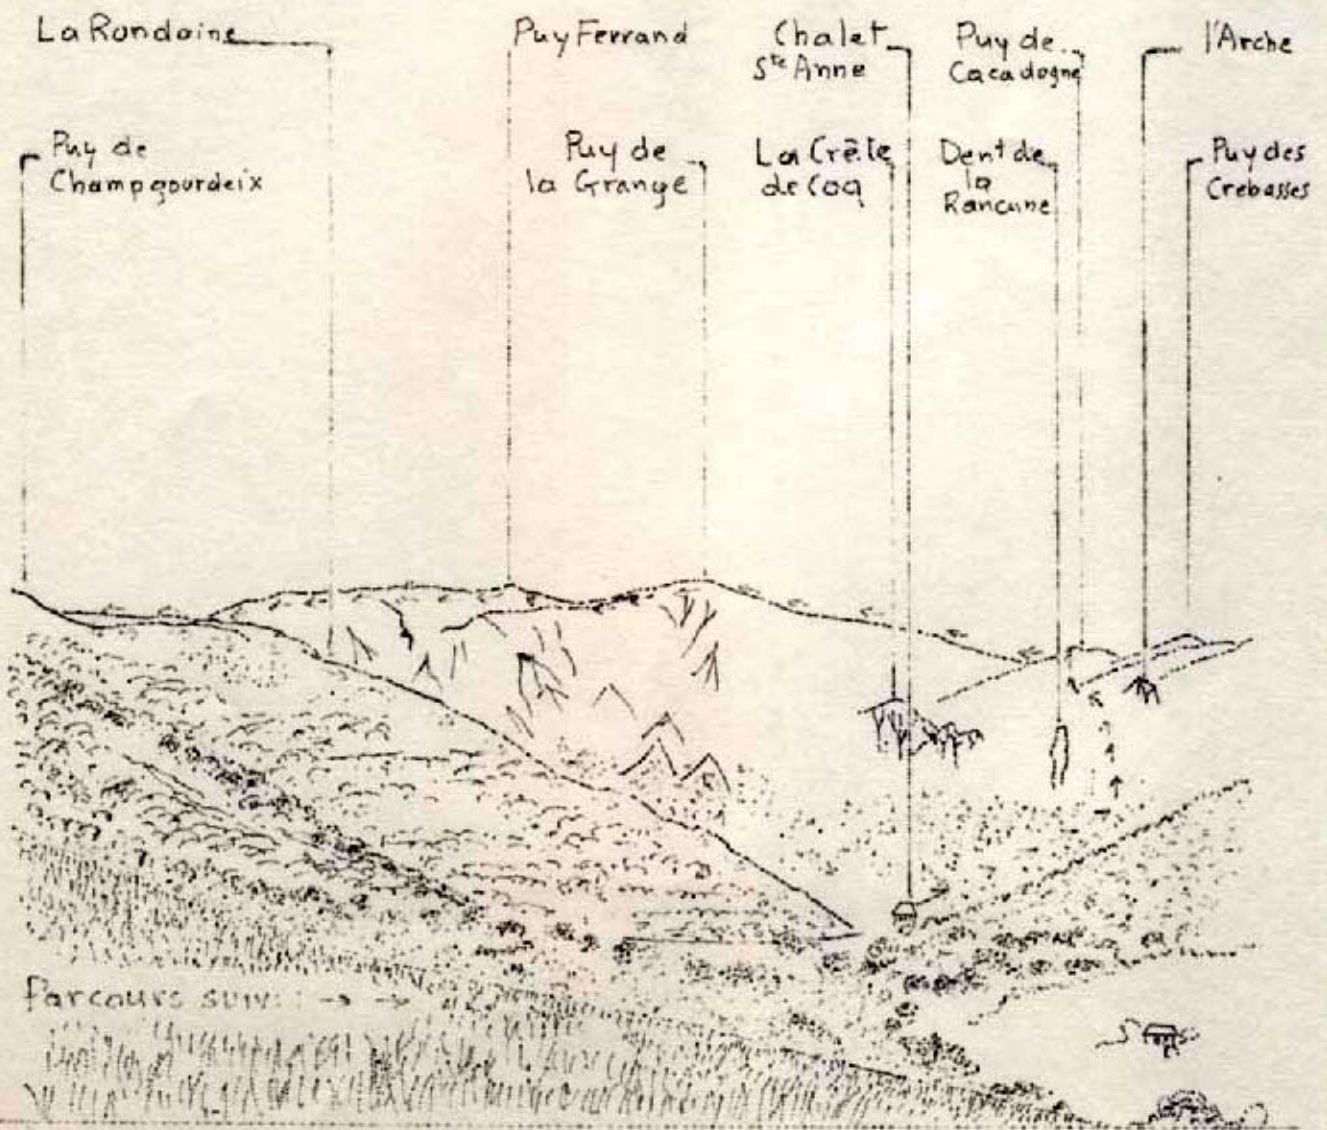 La Rondaine
Puy Ferrand
Chalet
Ste Anne
Puy de
Cacadogne
l'Arche
Puy de
Champgourdeix
Puy de
la Grange
La Crête
de Coq
Dent de
la
Rancune
Puy des
Crebasses
Parcours suivi : → →